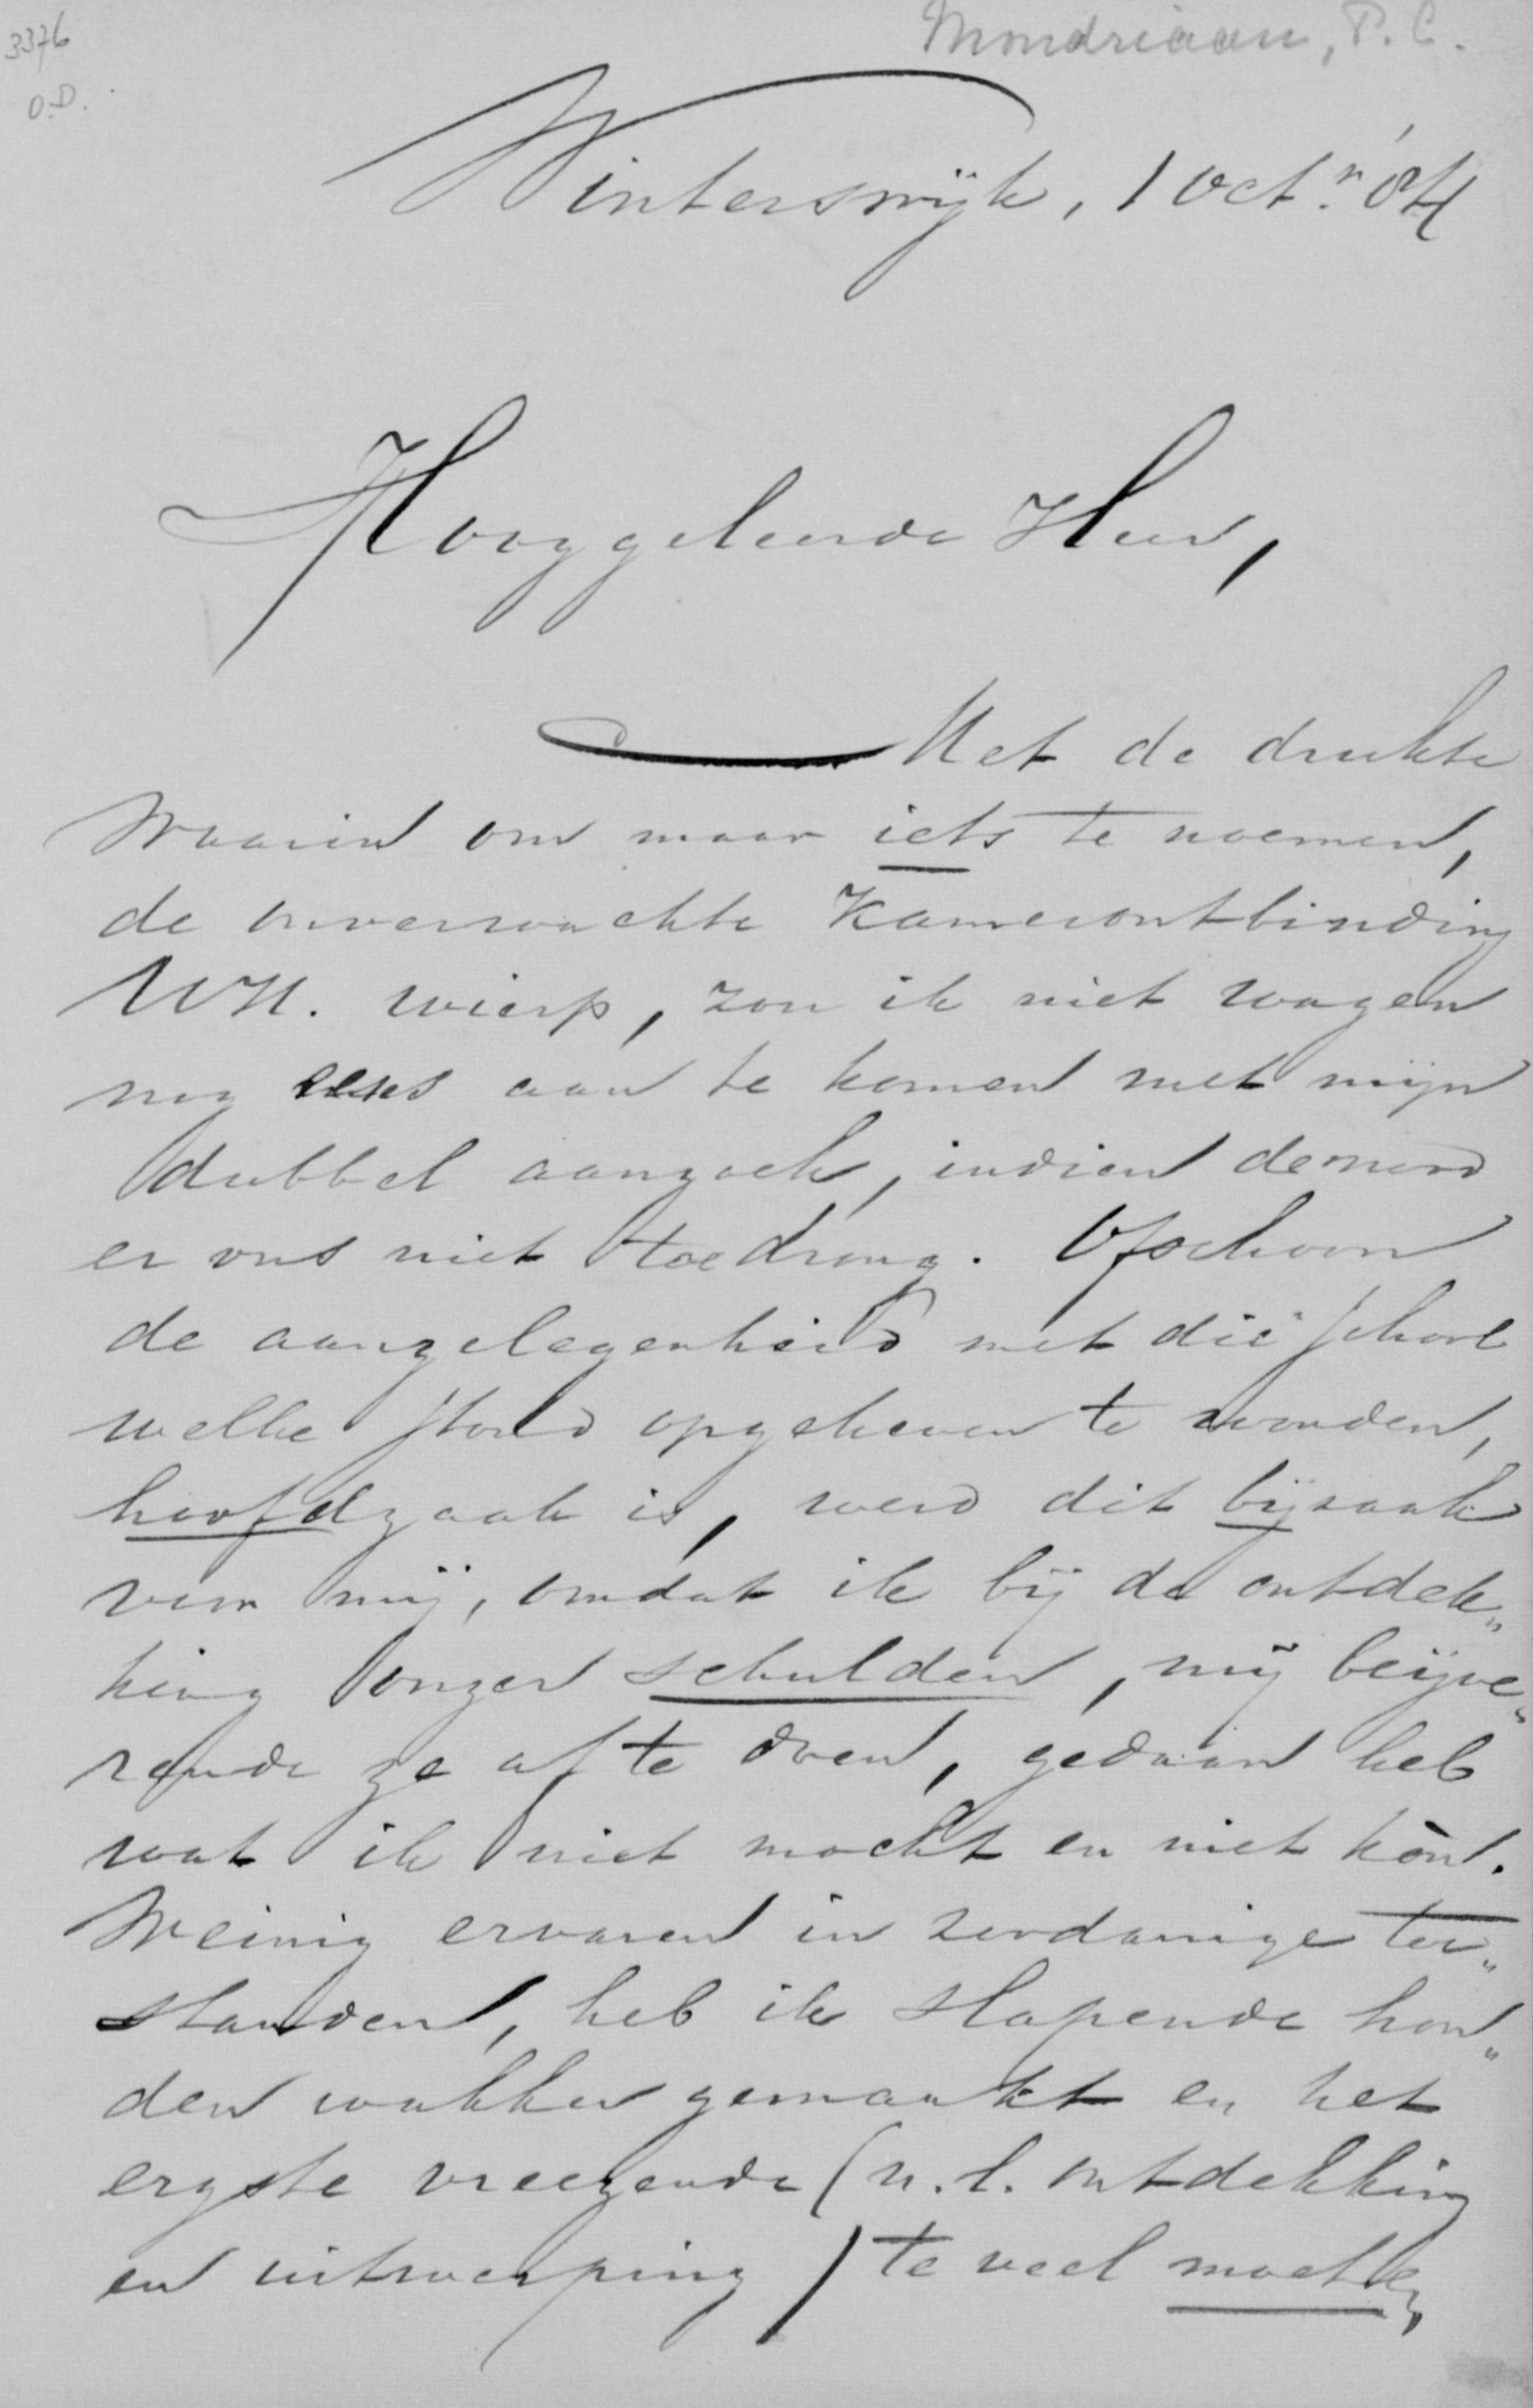 3376
O.D.
Mondriaan, P.C.
Winterswijk, 1 Octr. '84
Hooggeleerde Heer,
Met de drukte
waarin om maar iets te noemen,
de onverwachte Kamerontbinding
UH. wierp, zou ik niet wagen
nog eens aan te komen met mijn
dubbel aanzoek, indien de nood
er ons niet toe drong. Ofschoon
de aangelegenheid met die school
welke stond opgeheven te worden,
hoofdzaak is, werd dit bijzaak
voor mij, omdat ik bij de ontdek„
king onzer schulden, mij beijve„
rende ze af te doen, gedaan heb
wat ik niet mocht en niet kòn.
Weinig ervaren in zoodanige toe„
standen, heb ik slapende hon„
den wakker gemaakt en het
ergste vreezende (n.l. ontdekking
en uitwerping) te veel moeten